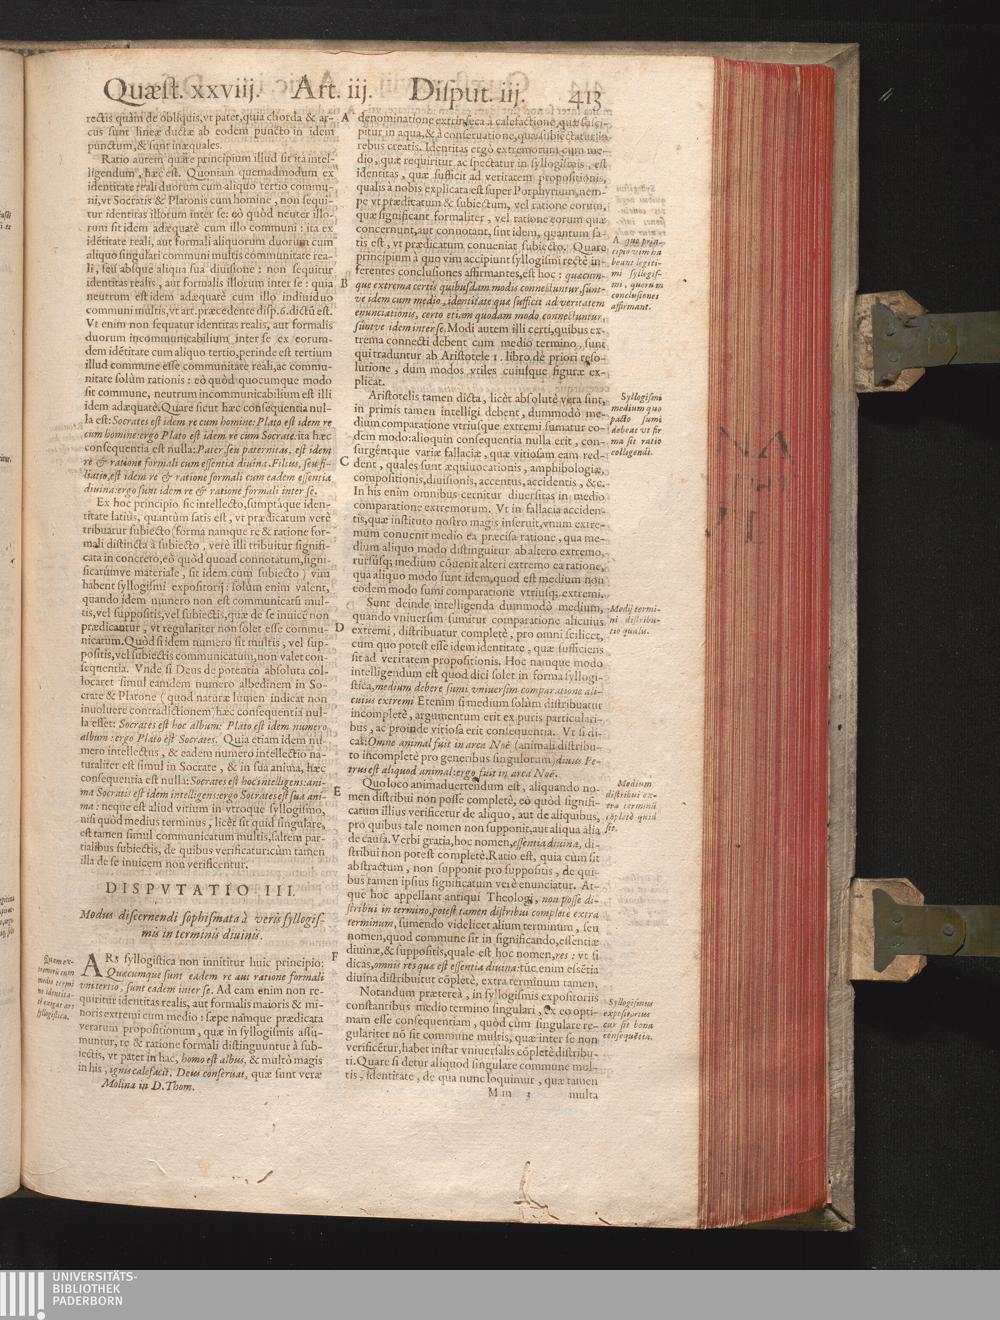 Quæst. xxviij. Art. iij. Disput. iij. 413
rectis quàm de obliquis, vt patet, quia chorda & ar-
cus sunt lineæ ductæ ab eodem puncto in idem
punctum, & sunt inæquales.
Ratio autem quare principium illud sit ita intel-
ligendum, hæc est. Quoniam quemadmodum ex
identitate reali duorum cum aliquo tertio commu-
ni, vt Socratis & Platonis cum homine, non sequi-
tur identitas illorum inter se: eò quòd neuter illo-
rum sit idem adæquatè cum illo communi: ita ex
idẽtitate reali, aut formali aliquorum duorum cum
aliquo singulari communi multis communitate rea-
li, seu absque aliqua sua diuisione: non sequitur
identitas realis, aut formalis illorum inter se: quia
neutrum est idem adæquatè cum illo indiuiduo
communi multis, vt art. præcedente disp. 6. dictũ est.
Vt enim non sequatur identitas realis, aut formalis
duorum incommunicabilium inter se ex eorum-
dem idẽtitate cum aliquo tertio, perinde est tertium
illud commune esse communitate reali, ac commu-
nitate solùm rationis: eò quòd quocumque modo
sit commune, neutrum incommunicabilium est illi
idem adæquatè. Quare sicut hæc consequentia nul-
la est: Socrates est idem re cum homine: Plato est idem re
cum homine: ergo Plato est idem re cum Socrate: ita hæc
consequentia est nulla: Pater, seu paternitas, est idem
re & ratione formali cum essentia diuina. Filius, seu fi-
liatio, est idem re & ratione formali cum eadem essentia
diuina: ergo sunt idem re & ratione formali inter se.
Ex hoc principio sic intellecto, sumptâque iden-
titate latiùs, quantùm satis est, vt prædicatum verè
tribuatur subiecto (forma namque re & ratione for-
mali distincta à subiecto, verè illi tribuitur signifi-
cata in concreto, eò quòd quoad connotatum, signi-
ficatúmve materiale, sit idem cum subiecto) vim
habent syllogismi expositorij: solùm enim valent,
quando idem numero non est communicatũ mul-
tis, vel suppositis, vel subiectis, quæ de se inuicẽ non
prædicantur, vt regulariter non solet esse commu-
nicatum. Quòd si idem numero sit multis, vel sup-
positis, vel subiectis communicatum, non valet con-
sequentia. Vnde si Deus de potentia absoluta col-
locaret simul eamdem numero albedinem in So-
crate & Platone (quod naturæ lumen indicat non
inuoluere contradictionem) hæc consequentia nul-
la esset: Socrates est hoc album: Plato est idem numero
album: ergo Plato est Socrates. Quia etiam idem nu-
mero intellectus, & eadem numero intellectio na-
turaliter est simul in Socrate, & in sua anima, hæc
consequentia est nulla: Socrates est hoc intelligens: ani-
ma Socratis est idem intelligens: ergo Socrates est sua ani-
ma: neque est aliud vitium in vtroque syllogismo,
nisi quòd medius terminus, licèt sit quid singulare,
est tamen simul communicatum multis, saltem par-
tialibus subiectis, de quibus verificatur: cùm tamen
illa de se inuicem non verificentur.
DISPVTATIO III.
Modus discernendi sophismata à veris syllogis-
mis in terminis diuinis.
Quem ex-
tremorũ cum
medio termi
no identita-
tẽ exigat ars
syllogistica.
ARs syllogistica non innititur huic principio:
Quæcumque sunt eadem re aut ratione formali
vni tertio, sunt eadem inter se. Ad eam enim non re-
quiritur identitas realis, aut formalis maioris & mi-
noris extremi cum medio: sæpe namque prædicata
verarum propositionum, quæ in syllogismis assu-
muntur, re & ratione formali distinguuntur à sub-
iectis, vt patet in hac, homo est albus, & multò magis
in his, ignis calefacit. Deus conseruat, quæ sunt veræ
Molina in D. Thom.
A
denominatione extrinseca à calefactione, quæ susci-
pitur in aqua, & à conseruatione, quæ subiectatur in
rebus creatis. Identitas ergò extremorum cum me-
dio, quæ requiritur ac spectatur in syllogismis, est
identitas, quæ sufficit ad veritatem propositionis,
qualis à nobis explicata est super Porphyrium, nem-
pe vt prædicatum & subiectum, vel ratione eorum,
quæ significant formaliter, vel ratione eorum quæ
concernunt, aut connotant, sint idem, quantum sa-
tis est, vt prædicatum conueniat subiecto. Quare
principium à quo vim accipiunt syllogismi rectè in-
ferentes conclusiones affirmantes, est hoc: quæcum-
B
que extrema certis quibusdam modis connectuntur, sunt-
ve idem cum medio, identitate quæ sufficit ad veritatem
enunciationis, certo etiam quodam modo connectuntur,
suntve idem inter se. Modi autem illi certi, quibus ex-
trema connecti debent cum medio termino, sunt
qui traduntur ab Aristotele 1. libro de priori reso-
lutione, dum modos vtiles cuiusque figuræ ex-
plicat.
A quo prin-
cipio vim ha
beant legiti-
mi syllogis-
mi, quorum
conclusiones
affirmant.
Aristotelis tamen dicta, licèt absolutè vera sint,
in primis tamen intelligi debent, dummodò me-
dium comparatione vtriusque extremi sumatur eo-
dem modo: alioquin consequentia nulla erit, con-
surgéntque variæ fallaciæ, quæ vitiosam eam red-
C
dent, quales sunt æquiuocationis, amphibologiæ,
compositionis, diuisionis, accentus, accidentis, &c.
In his enim omnibus cernitur diuersitas in medio
comparatione extremorum. Vt in fallacia acciden-
tis, quæ instituto nostro magis inseruit, vnum extre-
mum conuenit medio ea præcisa ratione, qua me-
dium aliquo modo distinguitur ab altero extremo,
rursúsq; medium cõuenit alteri extremo ea ratione,
qua aliquo modo sunt idem, quod est medium non
eodem modo sumi comparatione vtriusq; extremi.
Syllogismi
medium quo
pacto sumi
debeat vt fir
ma sit ratio
colligendi.
Sunt deinde intelligenda dummodò medium,
quando vniuersim sumitur comparatione alicuius
D
extremi, distribuatur completè, pro omni scilicet,
cum quo potest esse idem identitate, quæ sufficiens
sit ad veritatem propositionis. Hoc namque modo
intelligendum est quod dici solet in forma syllogi-
stica, medium debere sumi vniuersim comparatione ali-
cuius extremi. Etenim si medium solùm distribuatur
incompletè, argumentum erit ex puris particulari-
bus, ac proinde vitiosa erit consequentia. Vt si di-
cas: Omne animal fuit in arca Noë (animali distribu-
to incompletè pro generibus singulorum) diuus Pe-
trus est aliquod animal: ergo fuit in arca Noë.
Medij termi-
ni distribu-
tio qualis.
Quo loco animaduertendum est, aliquando no-
E
men distribui non posse completè, eò quòd signifi-
catum illius verificetur de aliquo, aut de aliquibus,
pro quibus tale nomen non supponit, aut aliqua alia
de causa. Verbi gratia, hoc nomen, essentia diuina, di-
stribui non potest completè. Ratio est, quia cùm sit
abstractum, non supponit pro suppositis, de qui-
bus tamen ipsius significatum verè enunciatur. At-
que hoc appellant antiqui Theologi, non posse di-
stribui in termino, potest tamen distribui completè extra
terminum, sumendo videlicet alium terminum, seu
nomen, quod commune sit in significando, essentiæ
diuinæ, & suppositis, quale est hoc nomen, res: vt si
F
dicas, omnis res quæ est essentia diuina: tũc enim essẽtia
diuina distribuitur cõpletè, extra terminum tamen.
Medium
distribui ex-
tra terminũ
cõpletè quid
sit.
Notandum præterea, in syllogismis expositoriis
constantibus medio termino singulari, ex eo opti-
mam esse consequentiam, quòd cùm singulare re-
gulariter nõ sit commune multis, quæ inter se non
verificẽtur, habet instar vniuersalis cõpletè distribu-
ti. Quare si detur aliquod singulare commune mul-
tis, identitate, de qua nunc loquimur, quæ tamen
Syllogismus
expositorius
cur sit bona
consequẽtia.
Mm 3 multa
UNIVERSITÄTS-
BIBLIOTHEK
PADERBORN